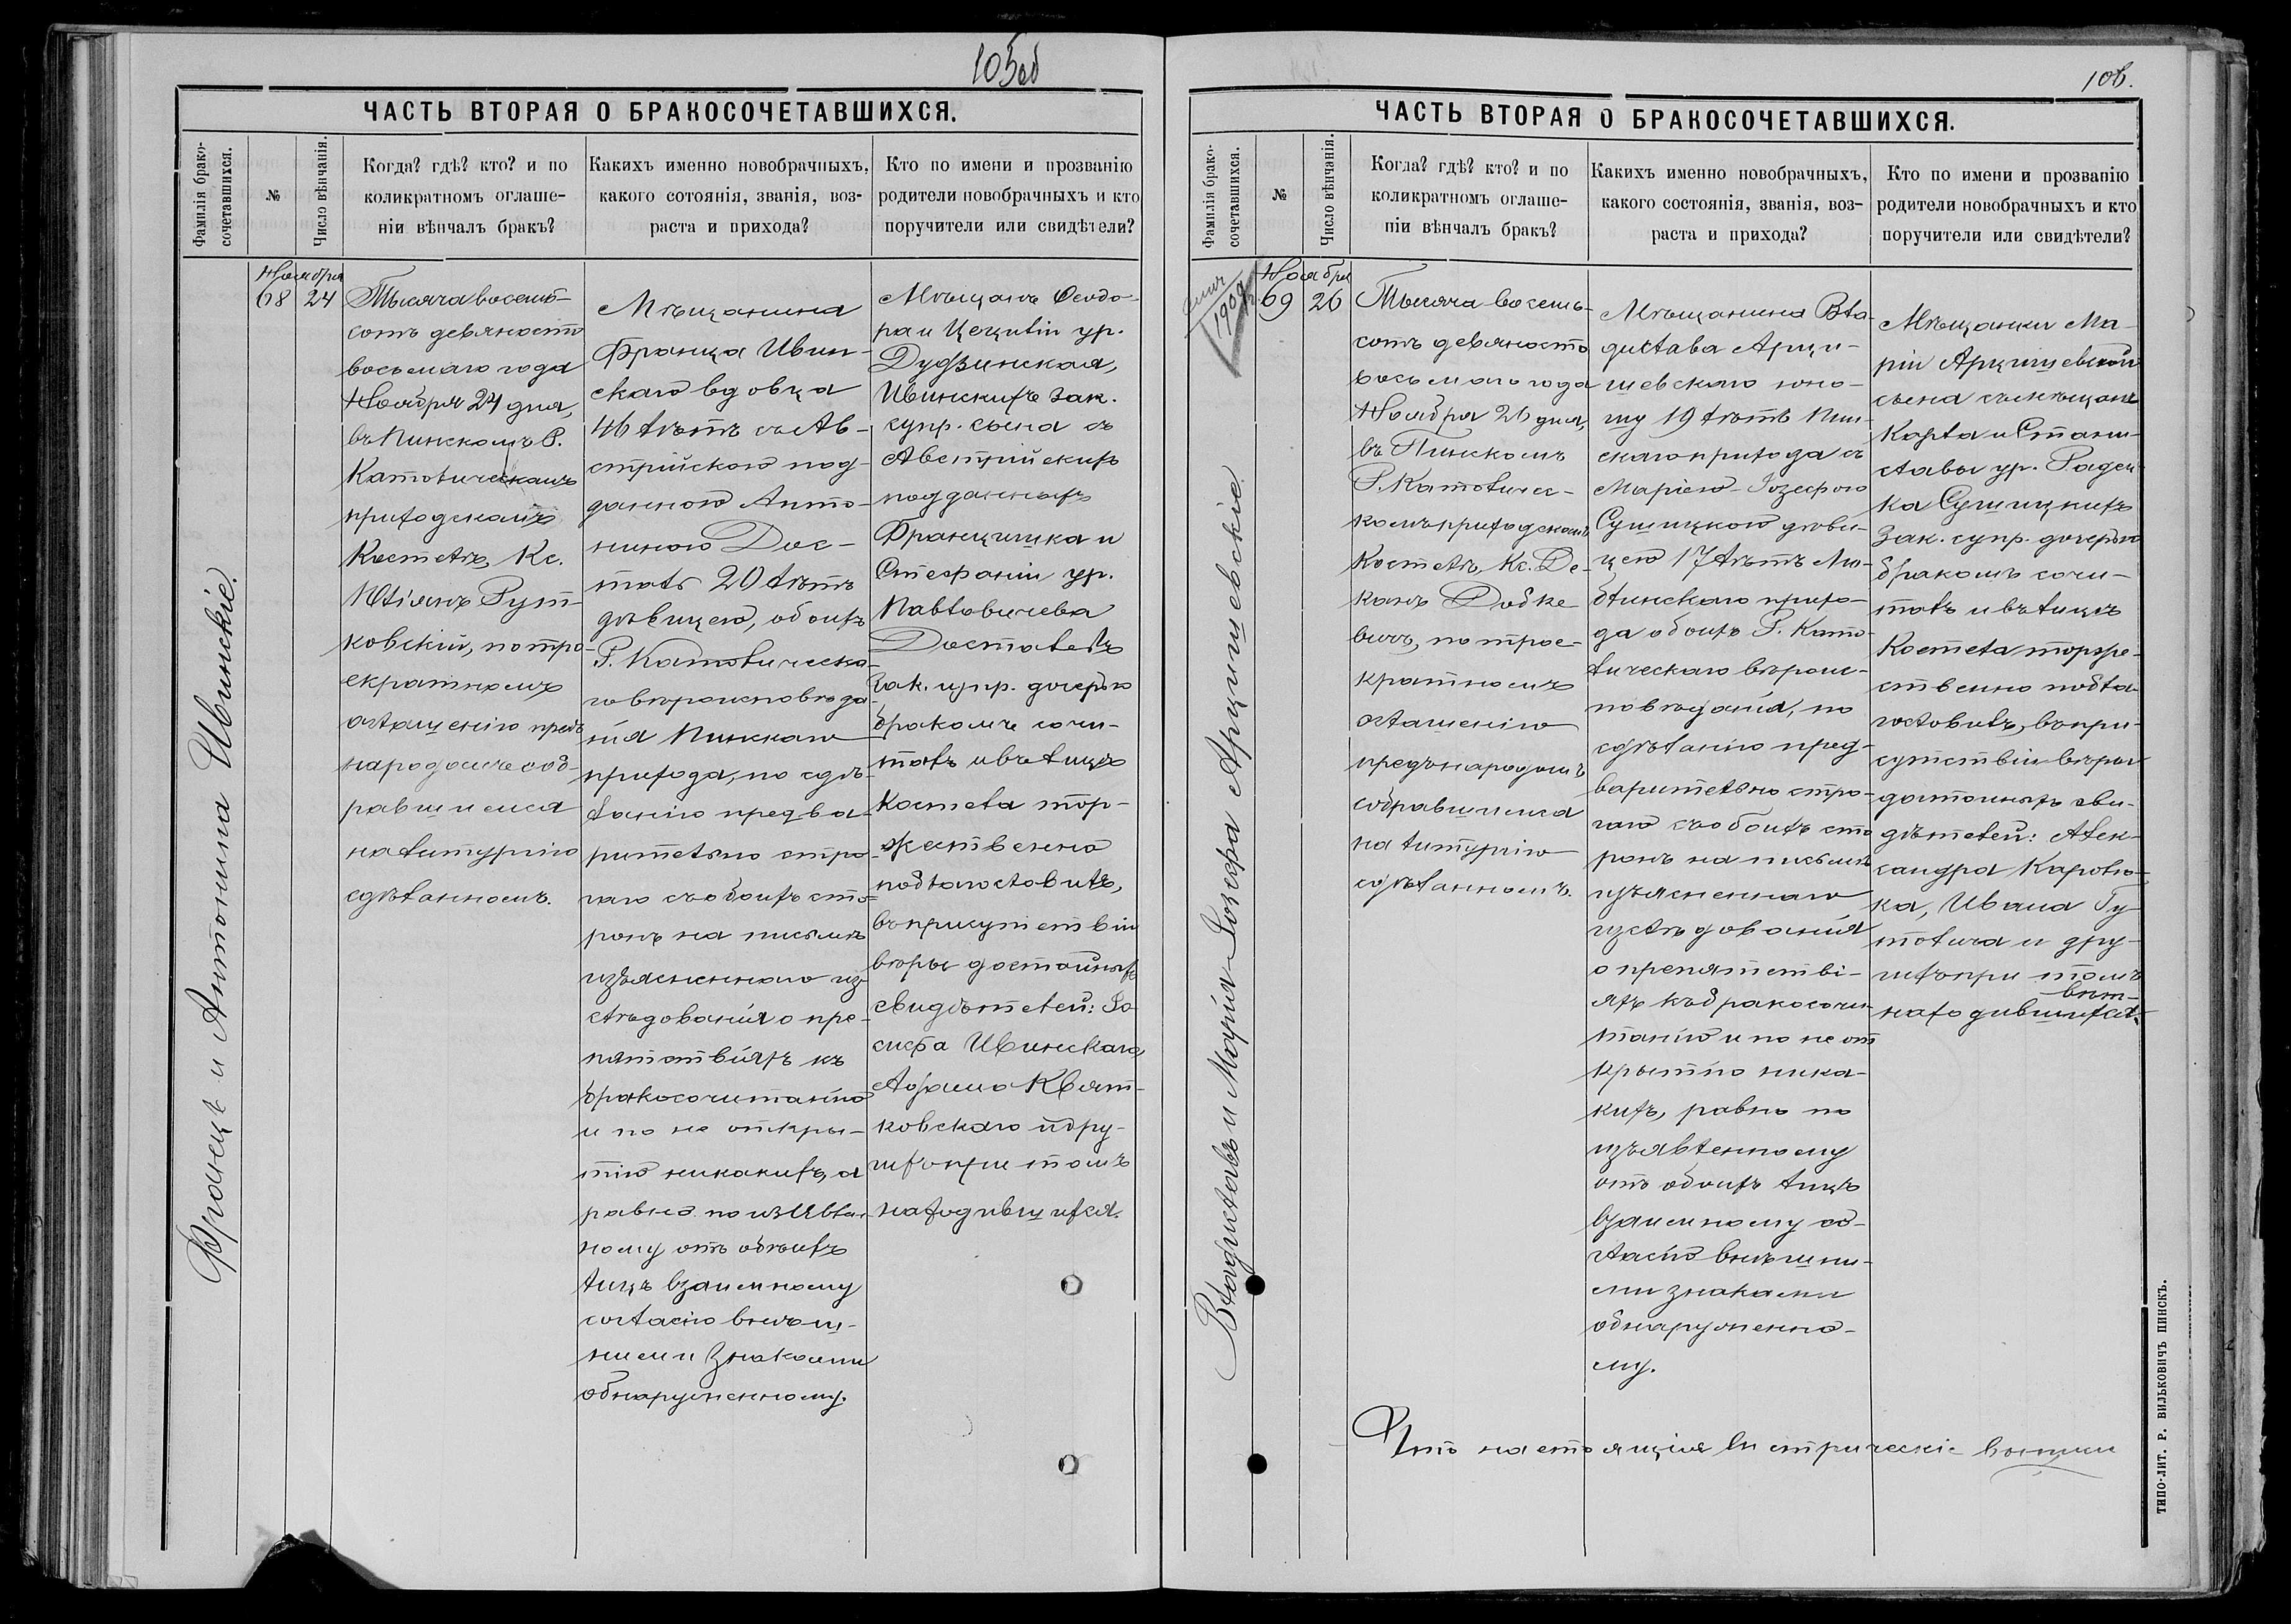 105об
ЧАСТЬ ВТОРАЯ О БРАКОСОЧЕТАВШИХСЯ.
Фамилія брако-
сочетавшихся.
№
Число вѣнчанія.
Когда? гдѣ? кто? и по
коликратномъ оглаше-
ніи вѣнчалъ бракъ?
Какихъ именно новобрачныхъ,
какого сотоянія, званія, воз-
раста и прихода?
Кто по имени и прозванію
родители новобрачныхъ и кто
поручители или свидѣтели?
Францъ и Антонина Ивинскіе.
Ноября
68
24
Тысяча восемь-
сотъ девяносто
восьмаго года
Ноября 24 дня,
въ Пинскомъ Р.
Католическомъ
приходскомъ
Костелѣ, Кс.
Юліянъ Рут-
ковскій, по тро-
екратномъ
оглашенію предъ
народомъ соб-
равшимся
на литургію
сдѣланномъ.
Мѣщанина
Франца Ивин-
скаго вдовца
46 лѣтъ съ Ав-
стрійскою под-
данною Анто-
ниною Дос-
талъ 20 лѣтъ
дѣвицею, обоихъ
Р. Католическа-
го вѣроисповѣда-
нія Пинскаго
прихода, по сдѣ-
ланію предва-
рительно стро-
гаго съ обоихъ сто-
ронъ на письмѣ
изъясненнаго из-
слѣдованія о пре-
пятствіяхъ къ
бракосочетанію
и по не откры-
тію никакихъ, а
равно по изъявлен-
ному отъ обѣихъ
лицъ взаимному
согласію внѣш-
ними знаками
обнаруженному.
Мѣщанъ Ѳеодо-
ра и Цециліи ур.
Дудзинская,
Ивинскихъ зак.
супр. сына съ
Австрійскихъ
подданныхъ
Францишка и
Стефаніи ур.
Павловичева
Досталевъ
Зак. супр. дочерью
бракомъ соче-
талъ и въ лицѣ
Костела тор-
жественно
поблагословилъ,
въ присутствіи
вѣры достойныхъ
свидѣтелей: Іо-
сифа Ивинскаго,
Адама Квят-
ковскаго и дру-
гихъ при томъ
находившихся.
106.
ЧАСТЬ ВТОРАЯ О БРАКОСОЧЕТАВШИХСЯ.
Фамилія брако-
сочетавшихся.
№
Число вѣнчанія.
Когда? гдѣ? кто? и по
коликратномъ оглаше-
ніи вѣнчалъ бракъ?
Какихъ именно новобрачныхъ,
какого состоянія, званія, воз-
раста и прихода?
Кто по имени и прозванію
родители новобрачныхъ и кто
поручители или свидѣтели?
1909
Владиславъ и Марія-Іозефа Арцишевскіе.
Ноября
69
26
Тысяча восемь-
сотъ девяносто
восьмого года
Ноября 26 дня,
въ Пинскомъ
Р. Католичес-
комъ приходскомъ
Костелѣ, Кс. Де-
канъ Добке
вичъ, по трое-
кратномъ
оглашенію
предъ народомъ
собравшимся
на литургію
сдѣланномъ.
Мѣщанина Вла-
дислава Арци-
шевскаго юно-
шу 19 лѣтъ Пин-
скаго прихода съ
Маріею-Іозефою
Сушицкою дѣви-
цею 17 лѣтъ Лю-
блинскаго прихо-
да обоихъ Р. Като-
лическаго вѣроис-
повѣданія, по
сдѣланію пред-
варительно стро-
гаго съ обоихъ сто
ронъ на письмѣ
изъясненнаго
изслѣдованія
о препятстві-
яхъ къ бракосоче-
танію и по не от
крытію ника-
кихъ, равно по
изъявленному
отъ обоихъ лицъ
взаимному со-
гласію внѣшни-
ми знаками
обнаруженно-
му.
Мѣщанки Ма-
ріи Арцишевской
сына съ мѣщанъ
Карла и Стани-
славы ур. Радец-
ка Сушицкихъ
Зак. супр. дочерью
бракомъ соче-
талъ и въ лицѣ
Костела торже-
ственно побла-
гословилъ, въ при-
сутствіи вѣры
достойныхъ сви-
дѣтелей: Алек-
сандра Королю-
ка, Ивана Гу-
толича и дру-
гихъ при томъ
находившихся.
Что настоящія метрическія
ТИПО-ЛИТ. Р. ВИЛЬКОВИЧЪ ПИНСКЪ.